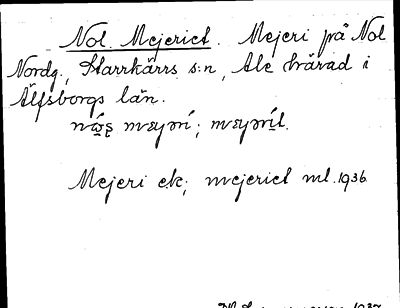 Nol. Mejeriet. Mejeri på Nol
Nordg., Starrkärrs s:n, Ale härad i
Älfsborgs län.
Mejeri ek; mejeriet ml. 1936
1937